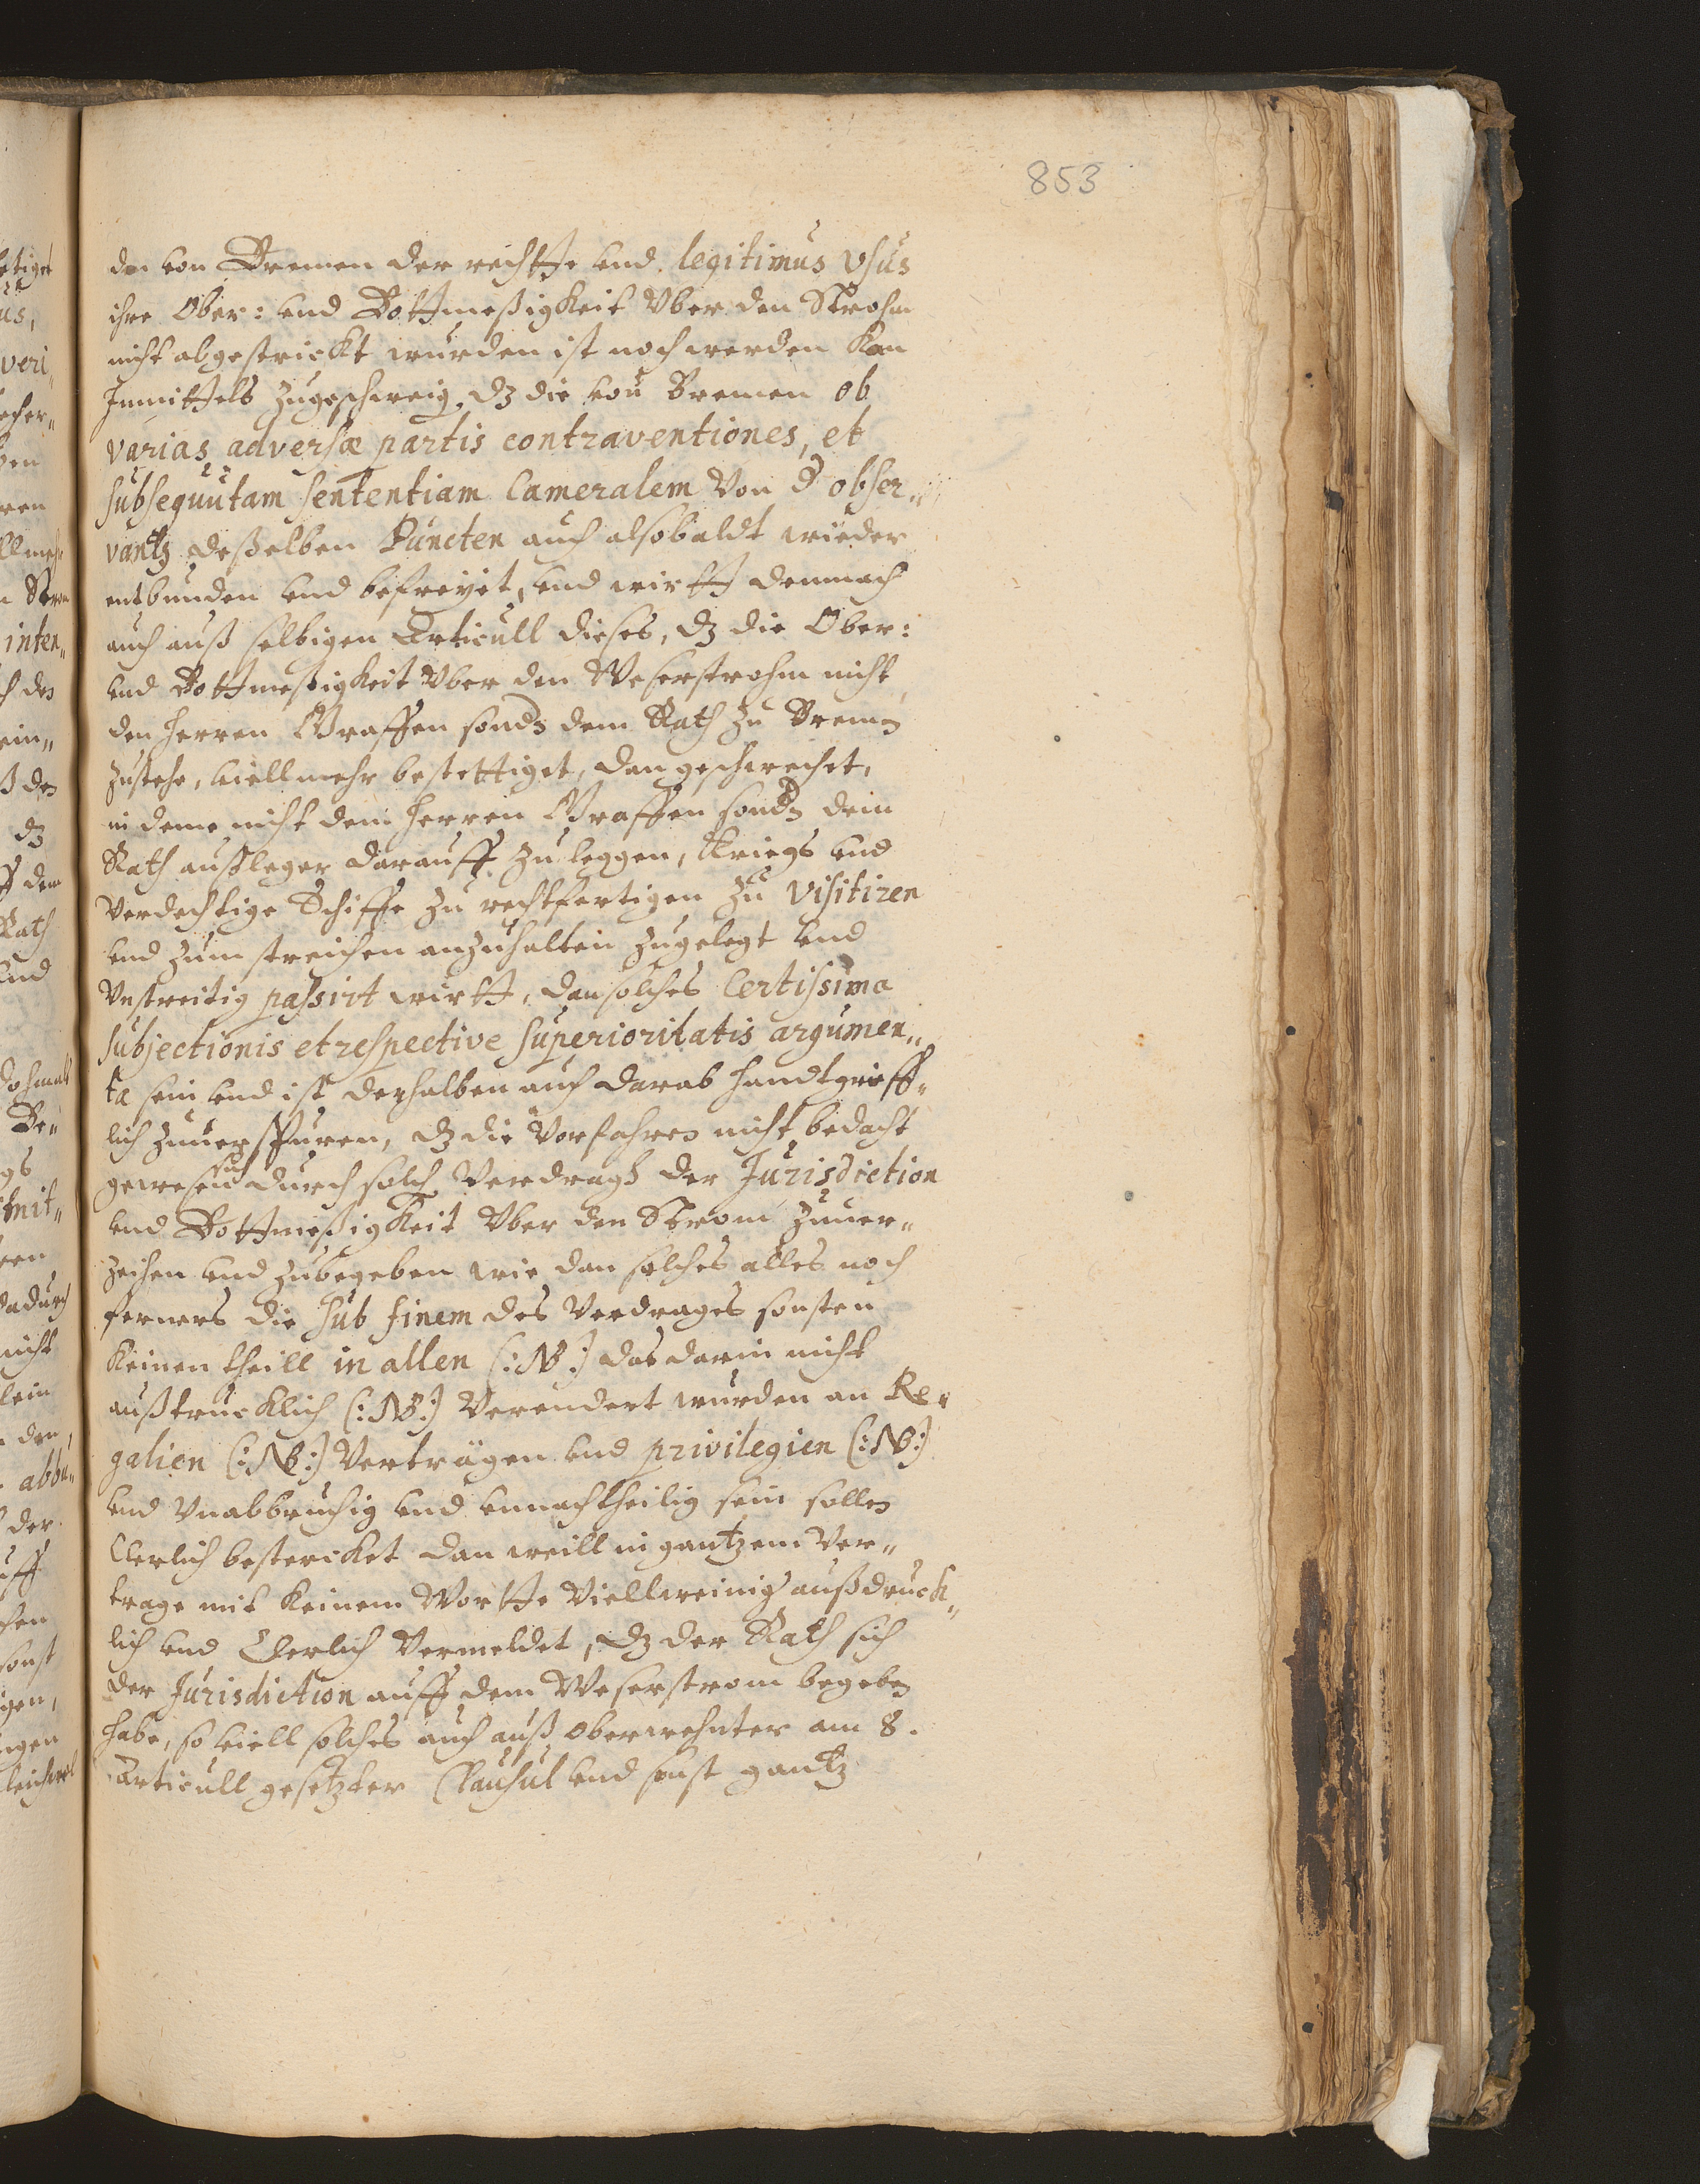 853
den von Bremen der rechtte vnd legitimus vsus
ihre Ober: vnd Bottmeßigkeit vber den Strohm
nicht abgestrickt wurden ist noch werden kan
Inmittels zugeschweig. dz die von Bremen ob
varias adversæ partis contraventiones, et
subsequutam sententiam Cameralem von d obser„
vantz deßelben Puncten auch alsobaldt wieder
entbunden vnd befreyet, vnd wirtt demnach
auch auß selbigen Articull dieses, dz die Ober:
vnd Bottmeßigkeit vber den Weserstrohm nicht
den Herren Graffen sonds dem Rath zu Bremen
zustehe, viellmehr bestettiget, dan geschwechet,
in deme nicht dem Herren Graffen sonds dem
Rath außleger darauff zu leggen, Kriegs vnd
verdechtige Schiffe zu rechtfertigen zu visitiren
vnd zum streichen anzuhalten zugelegt vnd
vnstreitig passirt wirtt, dan solches Certissima
subjectionis et respective superioritatis argumen„
ta sein vnd ist derhalben auch darab handtgreiff„
lich zuuerspuren, dz die Vorfahren nicht bedacht
gewesen sich durch solch Verdragh der Jurisdiction
vnd Bottmeßigkeit vber den Strom zuuer„
zeihen vnd zubegeben wie dan solches alles noch
ferners die sub finem des Verdrages sonsten
keinen theill in allen (:NB:) das darin nicht
außtrucklich (:NB:) verendert wurden an Re„
galien (:NB:) Verträgen vnd privilegien (:NB:)
vnd vnabbruchig vnd vnnachtheilig sein sollen
Clerlich bestercket dan weill in gantzem Ver„
trage mit keinem Wortte viellweinig außdruck„
lich vnd Clerlich vermeldet, dz der Rath sich
der Jurisdiction auff dem Weserstrom begeben
habe, so viell solches auch auß oberwehnter am 8.
Articull gesetzter Clausul vnd sonst gantz